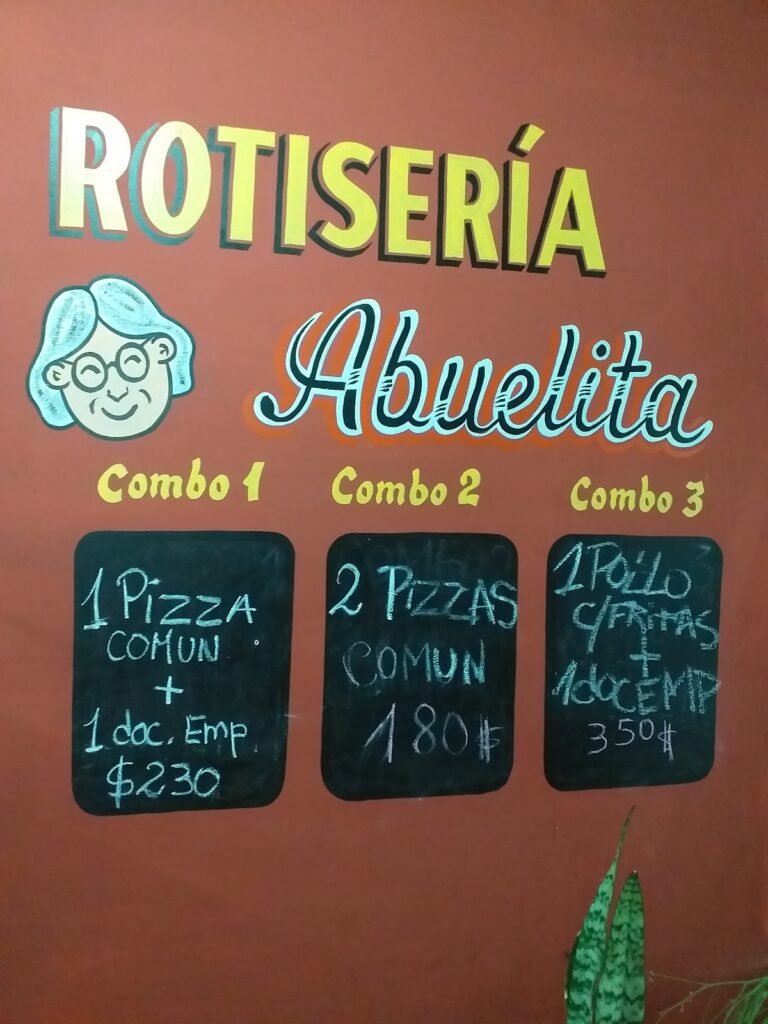 ROTISERÍA
Abuelita
Combo 1
1 PizzA
COMUN
+
1 doc. Emp.
$230
Combo 2
2 PizzAS
COMUN
180$
Combo 3
1 POllO
C/FRITAS
+
1 doc EMP
350$